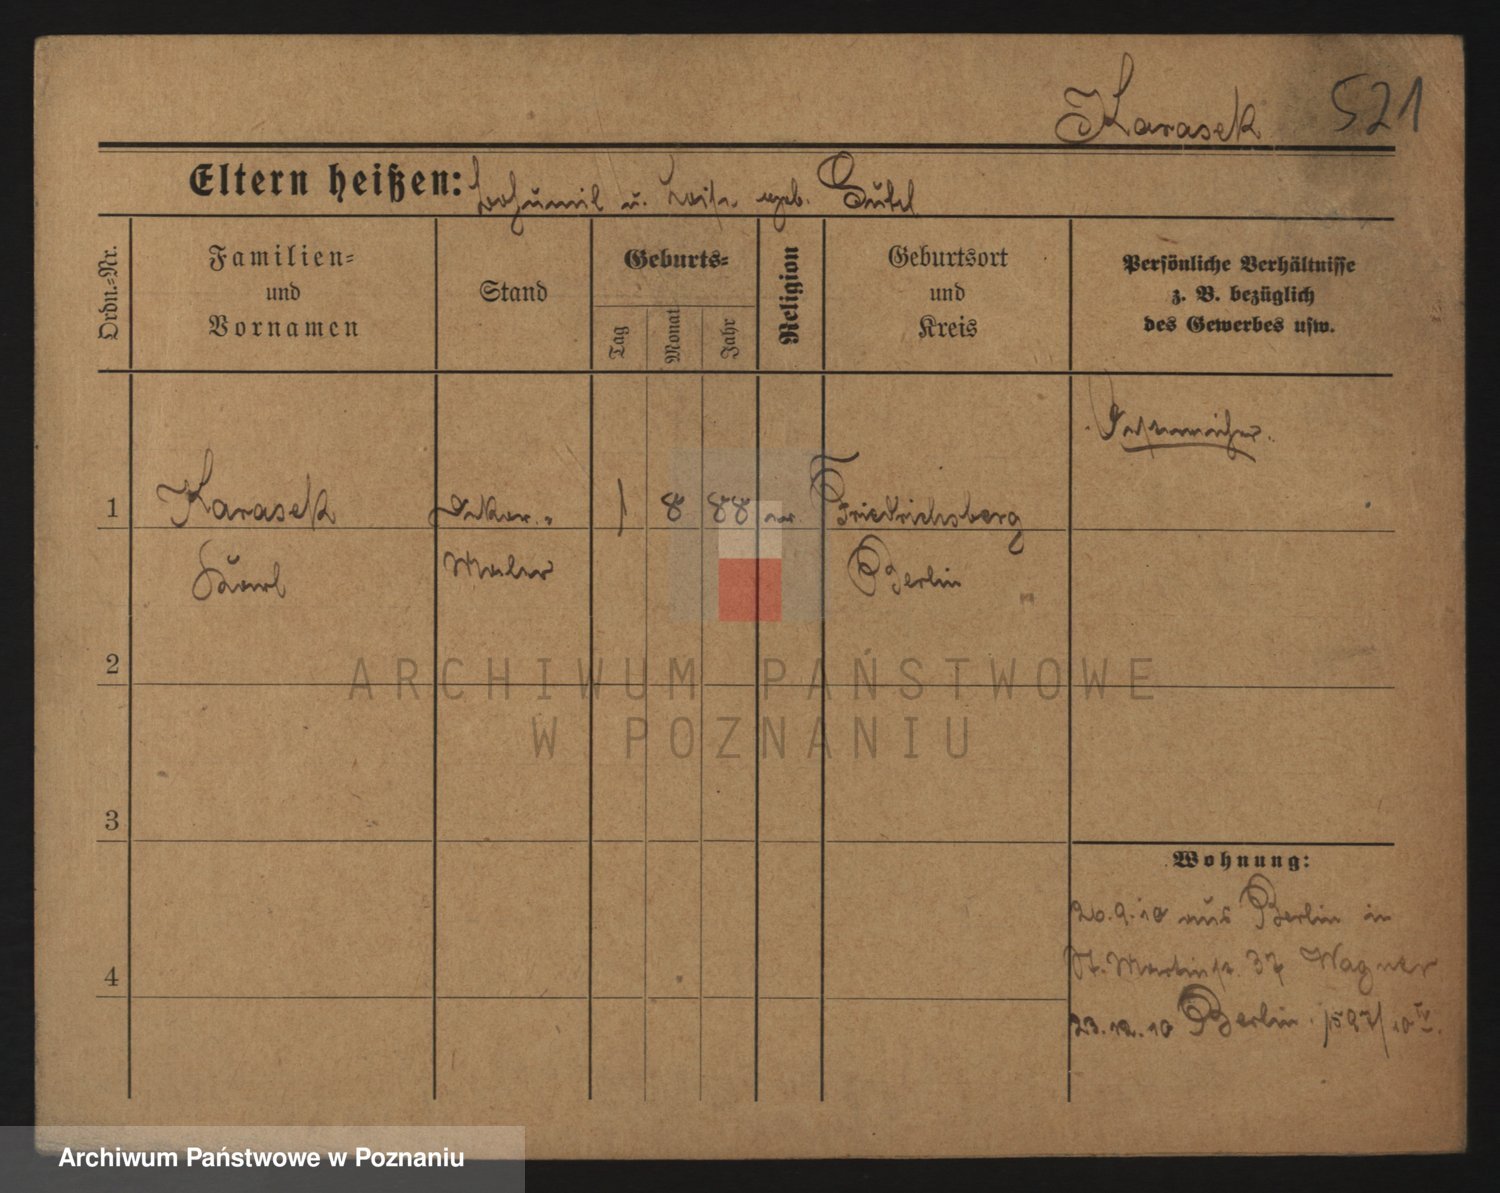 Karasek 521
Eltern heißen: Bohumil u. geb.
Ordn.-Nr.
Familien-
und
Vornamen
Stand
Geburts-
Tag
Monat
Jahr
Religion
Geburtsort
und
Kreis
Persönliche Verhältnisse
z. B. bezüglich
des Gewerbes usw.
1 Karasek Dekor.- 1 8 88 Friedrichsberg
Karl Maler Berlin
2
3
4
Wohnung:
20.9.10 aus Berlin in
St. Martinstr. 37 Wagner
23.12.10 Berlin.
ARCHIWUM PAŃSTWOWE
W POZNANIU
Archiwum Państwowe w Poznaniu